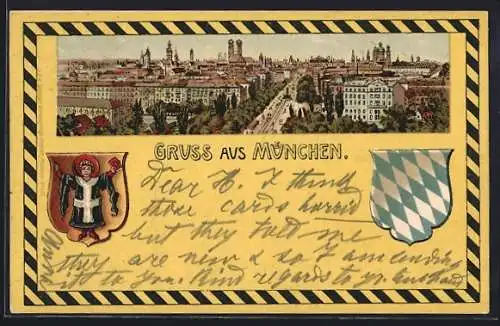 GRUSS AUS MÜNCHEN.
Dear H. I think
those cards horrid
but they told me
they are new & so I am sending
it to you. Kind regards to yr. husband
Anni